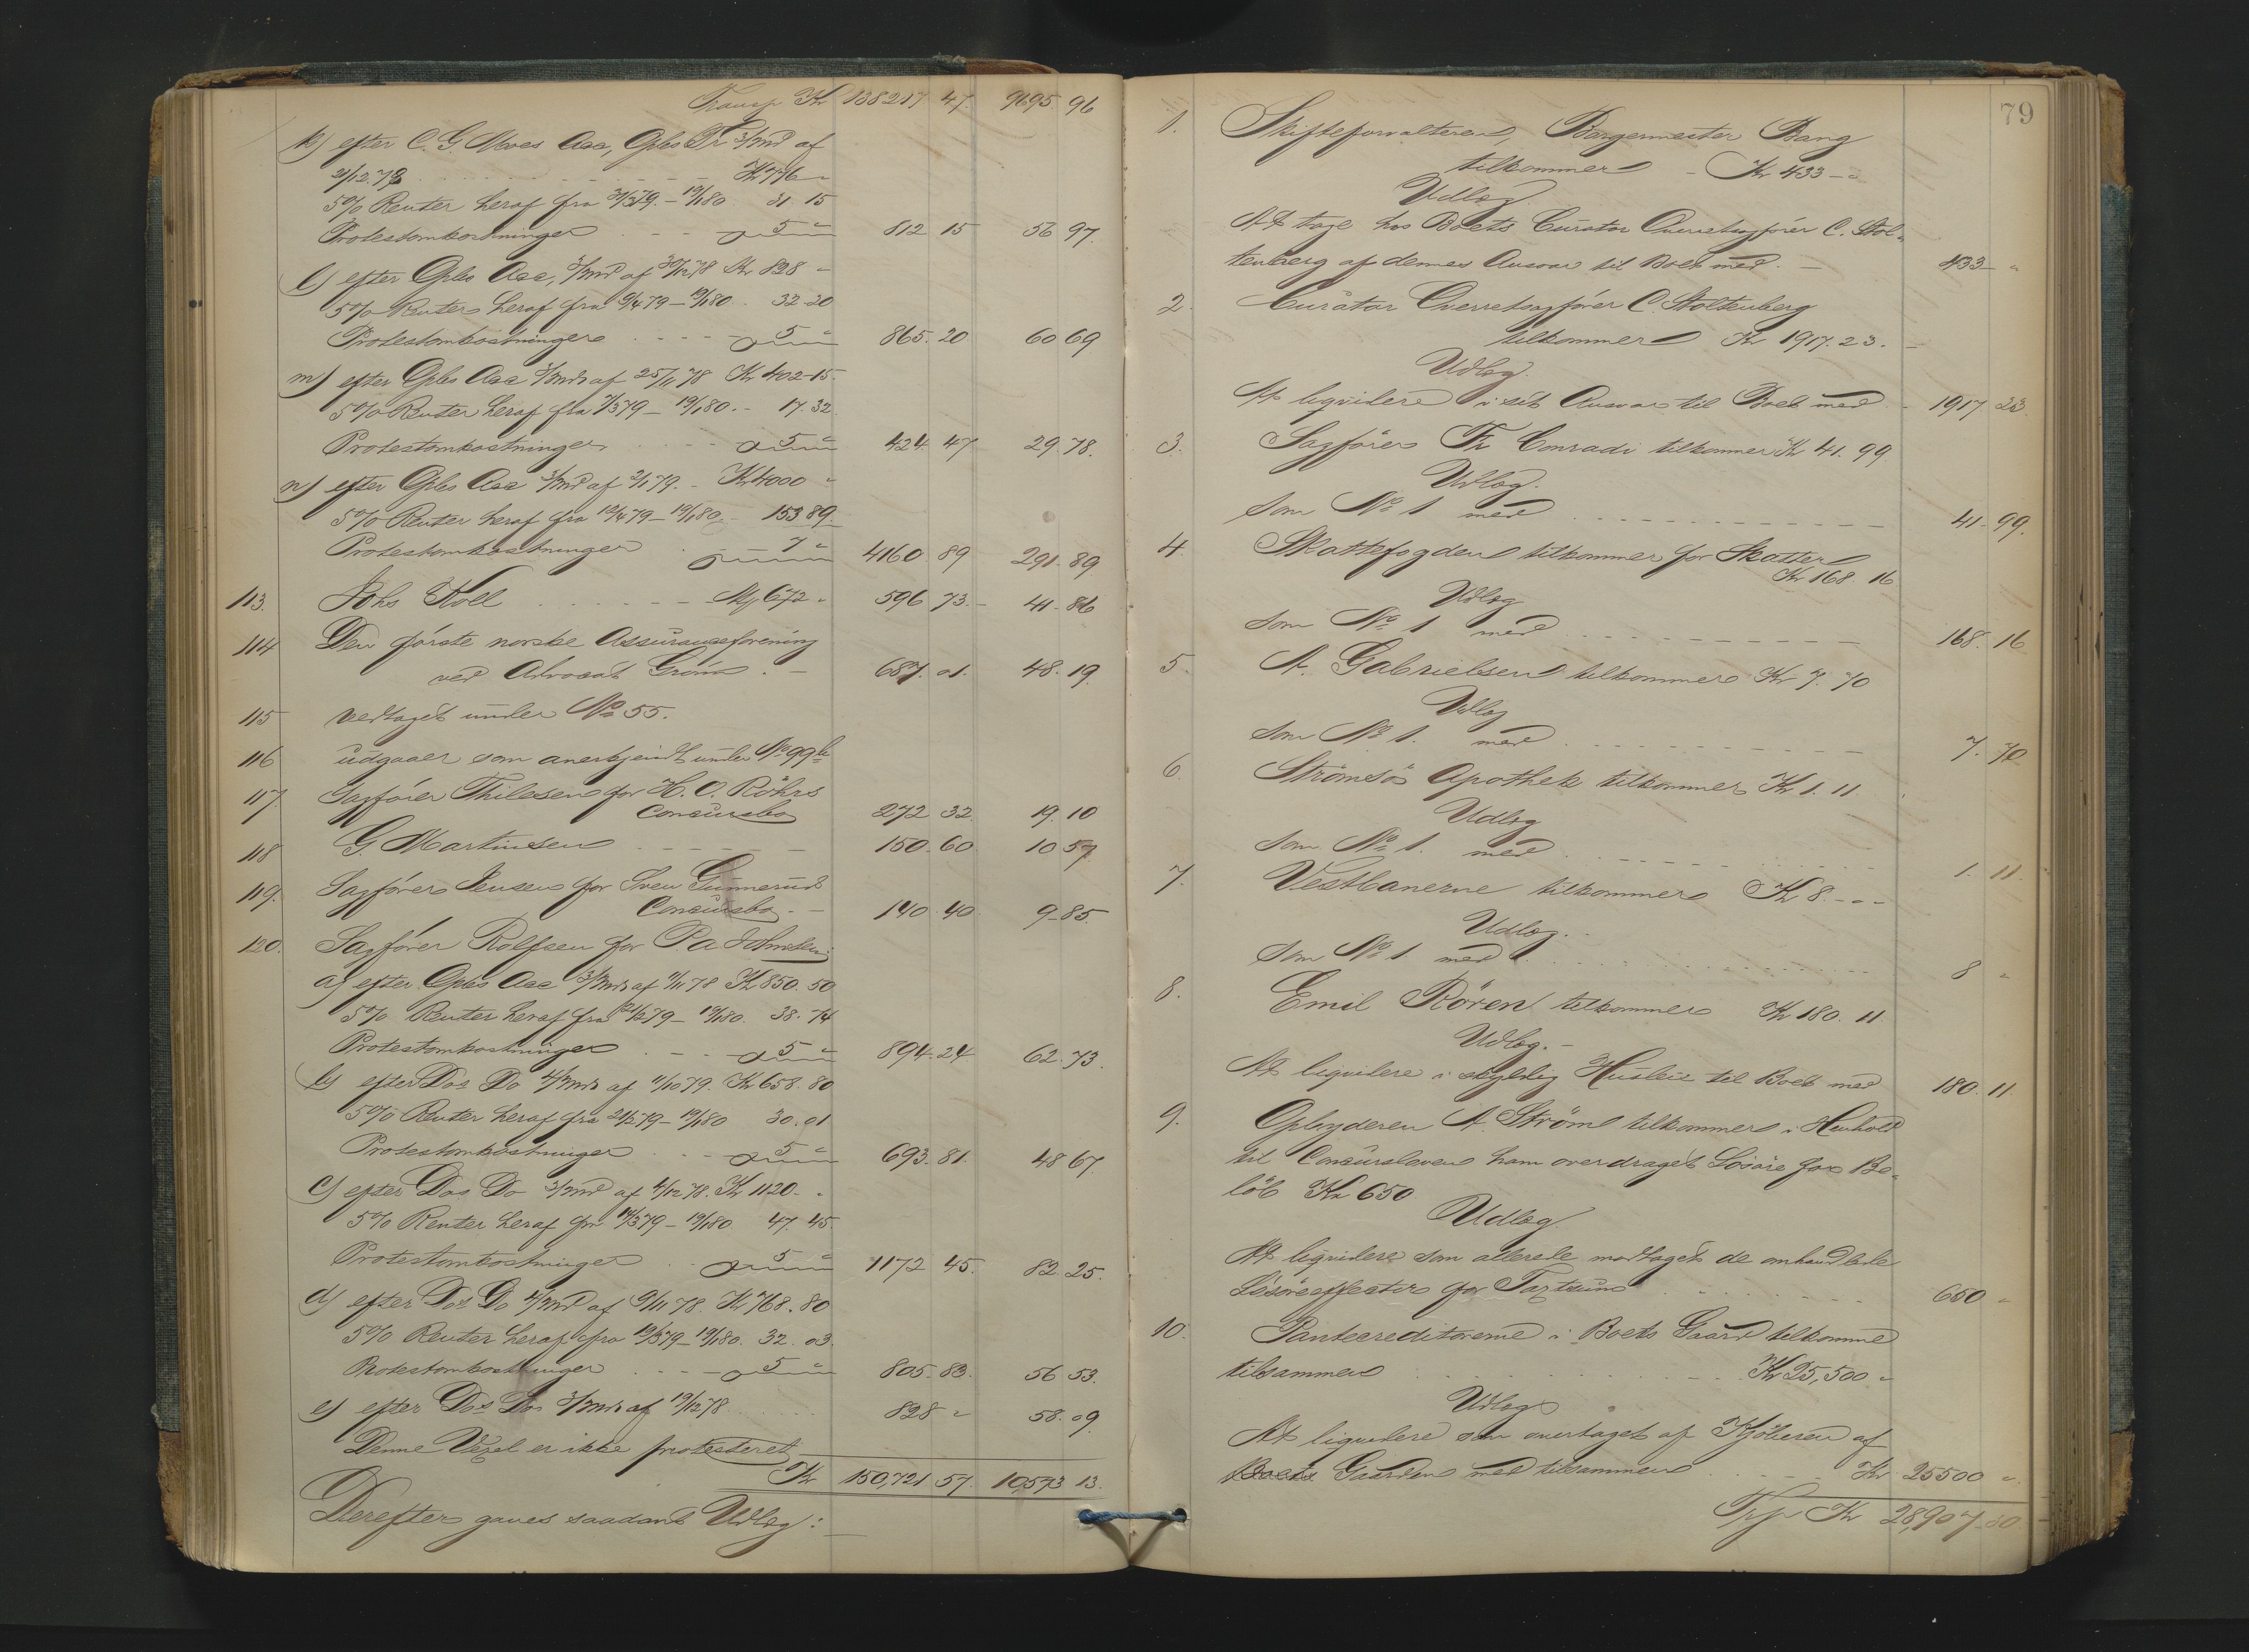 Transp Kr 138217 47. 9695 96
k) efter C. G. Moes Acc, Gjels Tr 3/mnd af
2/12.78 . . . . Kr 776 "
5% Renter heraf fra 31/3 79. – 19/1 80 31 15
Protestomkostninger . . - - 5 " 812 15 56 97.
l) efter Gjels Acc, 3/mnd af 30/12 78 Kr 828 -
5% Renter heraf fra 9/4 79 – 19/1 80 . 32 20
Protestomkostninger . . - - 5 " 865. 20 60 69
m) efter Gjels Acc 3/mnd af 25/11 78 Kr 402-15.
5% Renter heraf fra 7/3 79 – 19/1 80. - 17. 32
Protestomkostninger . . - - 5 " 424. 47 29. 78.
n) efter Gjels Acc 3/mnd af 2/1 79. - Kr 4000 "
5% Renter heraf fra 12/4 79 – 19/1 80. 153 89.
Protestomkostninger . . 7 " 4160. 89 291. 89
113. Johs Koll . . . . - - 672 " 596. 73. - 41 - 86
114 Den første norske Assuranceforening
ved Advocat Grönn . - 687. 01. 48. 19.
115 vedtaget under No 55.
116 udgaaer som anerkjendt under No 99 b
117 Sagfører Thilesen for H. O. Röhrs
Concursbo 272 32. 19. 10
118 G. Martinsen - - - - 150. 60 10 57
119. Sagfører Jensen for Sven Gunnerud
Concursbo - - 140. 40 9-85.
120. Sagfører Rolfsen for
a) efter Gjels Acc 3/mnd af 9/11 78 Kr 850. 50
5% Renter heraf fra 79 – 19/1 80. 38. 74
Protestomkostninger . - - 5 " 894. 24 62. 73.
b) efter Dos Do 4/mnd af 11/10 79. Kr 658. 80
5% Renter heraf fra 21/2 79 – 19/1 80 30. 01
Protestomkostninger . . - 5 " 693. 81. 48 67.
c) efter Dos Do 3/mnd af 4/12 78. Kr 1120. "
5% Renter heraf fra 14/3 79 – 19/1 80 47. 45
Protestomkostninger . . 5 " 1172 45. 82. 25.
d) efter Dos Do 4/mnd af 9/11 78. Kr 768. 80
5% Renter heraf fra 19/3 79 – 19/1 80. 32. 03
Protestomkostninger . . - - 5 " 805. 83. 56 53.
e) efter Dos Do 3/mnd af 19/12 78 . . . . 828 " 58. 09.
Denne Vexel er ikke protesteret
Kr 150,721 57. 10,573 13.
Derefter gaves saadant Udlæg:
79
1. Skifteforvalteren, Borgermester Bang
tilkommer - Kr 433 - "
Udlæg.
At tage hos Boets Curator Overretssagfører C. Stol-
tenberg af dennes Ansvar til Boet med . - 433 - "
2. Curator Overretssagfører C. Stoltenberg
tilkommer Kr 1917. 23. -
Udlæg.
At liqvidere i sit Ansvar til Boet med - 1917 23.
3. Sagfører Fr Conradi tilkommer Kr 41. 99
Udlæg.
som No 1 med . - - - - 41 - 99.
4. Skattefogden tilkommer for Skatter
Kr 168. 16
Udlæg
som No 1 med . - - - - 168. 16
5. A. Gabrielsen tilkommer Kr 7. 70
Udlæg
som No 1. med . . . . . 7. 70
6. Strømsø Apothek tilkommer Kr 1. 11
Udlæg
som No 1. med . - - - 1. 11.
7. Vestbanerne tilkommer Kr 8. - " -
Udlæg. -
som No 1 med . . . . . 8 "
8. Emil Rören tilkommer Kr 180. 11
Udlæg. -
At liqvidere i skyldig Husleie til Boet med 180. 11.
9. Opbyderen A. Strøm tilkommer i Henhold
til Concursloven ham overdraget Løsøre for Be-
løb Kr 650
Udlæg
At liqvidere som allerede modtaget de omhandlede
Løsøreeffecter for Taxtsum . . . . 650 "
10. Pantecreditorerne i Boets Gaard tilkomme
tilsammen . . . . Kr 25,500 "
Udlæg
At liqvidere som overtaget af Kjøberen af
Boets Gaarden med tilsammen . - - Kr 25500 "
Trsp Kr 28,907. 30